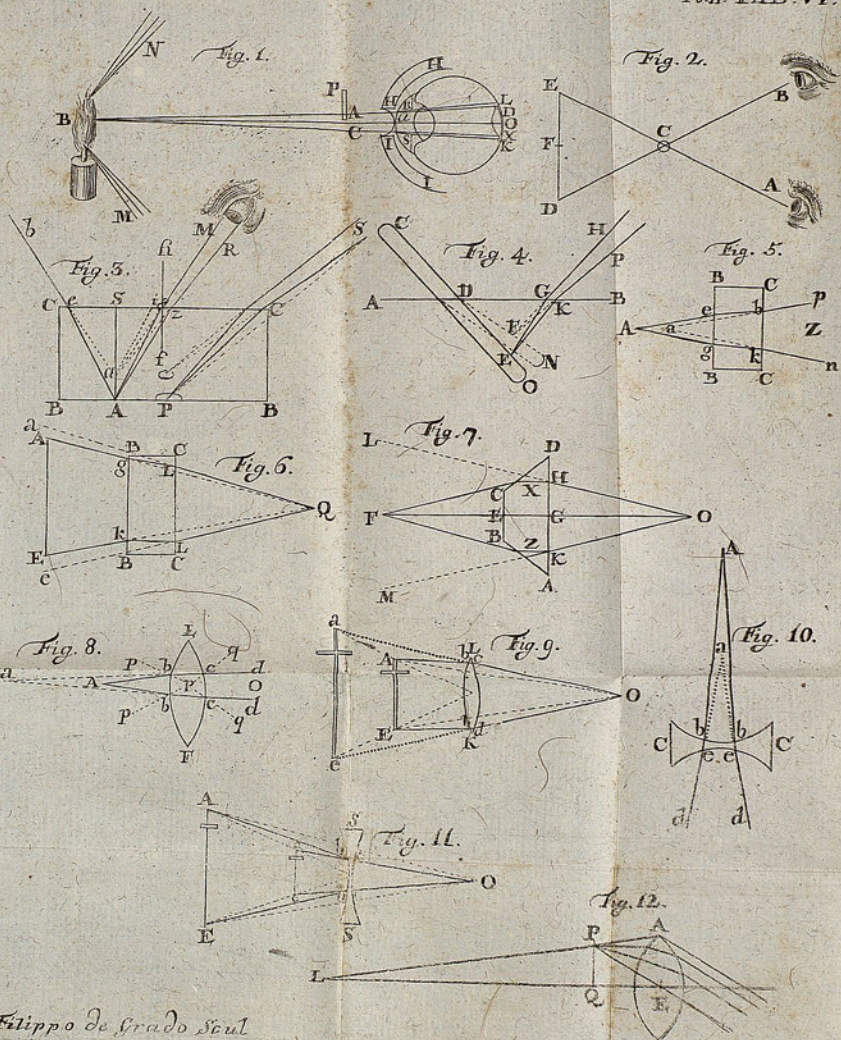 TAB. VI.
Fig. 1.
N
B
M
P
A
C
H
H
R
a
I
S
I
L
D
O
X
K
Fig. 2.
E
F
D
C
B
A
Fig. 3.
b
M
R
h
S
C
e
S
i
z
C
a
f
B
A
P
B
Fig. 4.
C
H
P
A
D
G
B
K
F
E
N
O
Fig. 5.
B
C
e
b
p
A
a
Z
g
k
n
B
C
Fig. 6.
a
A
B
C
g
L
Q
E
k
L
e
B
C
Fig. 7.
L
D
C
X
H
F
E
G
O
B
Z
K
M
A
Fig. 8.
L
p
b
c
q
d
a
A
P
O
b
c
d
p
q
F
Fig. 9.
a
A
b
L
c
O
E
d
K
e
Fig. 10.
A
a
b
b
C
C
e
e
d
d
Fig. 11.
A
S
O
E
S
Fig. 12.
P
A
L
Q
E
Filippo de Grado Scul